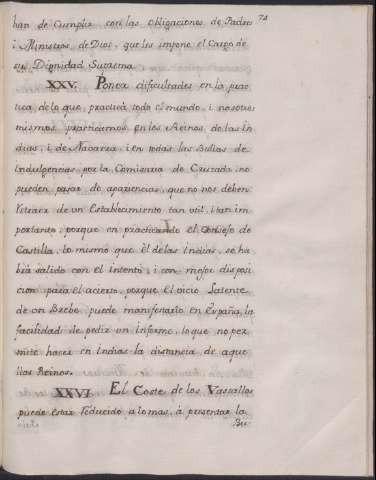 74
han de Cumplir con las obligaciones de Padres
i Ministros de Dios, que les impone el Cargo de
su Dignidad Suprema.
XXV. Poner dificultades en la prac
tica de lo que practica todo el mundo, i nosotros
mismos practicamos en los Reinos de las In
dias, i de Navarra, i en todas las Bulias de
indulgencias por la Comisaria de Cruzada, no
pueden pasar de apariencias, que no nos deben
retraer de un Establecimiento tan util, i tan im
portante, porque en practicando el Consejo de
Castilla, lo mismo que el de las Indias, se ha
brá salido con el intento, i con mejor disposi
cion para el acierto, porque el vicio latente
de un Brebe, puede manifestarlo en España, la
facilidad de pedir un informe, lo que no per
mite hacer en Indias la distancia de aque
llos Reinos.
XXVI. El Coste de los Vasallos
puede estar reducido a lo mas, à presentar la
Bu